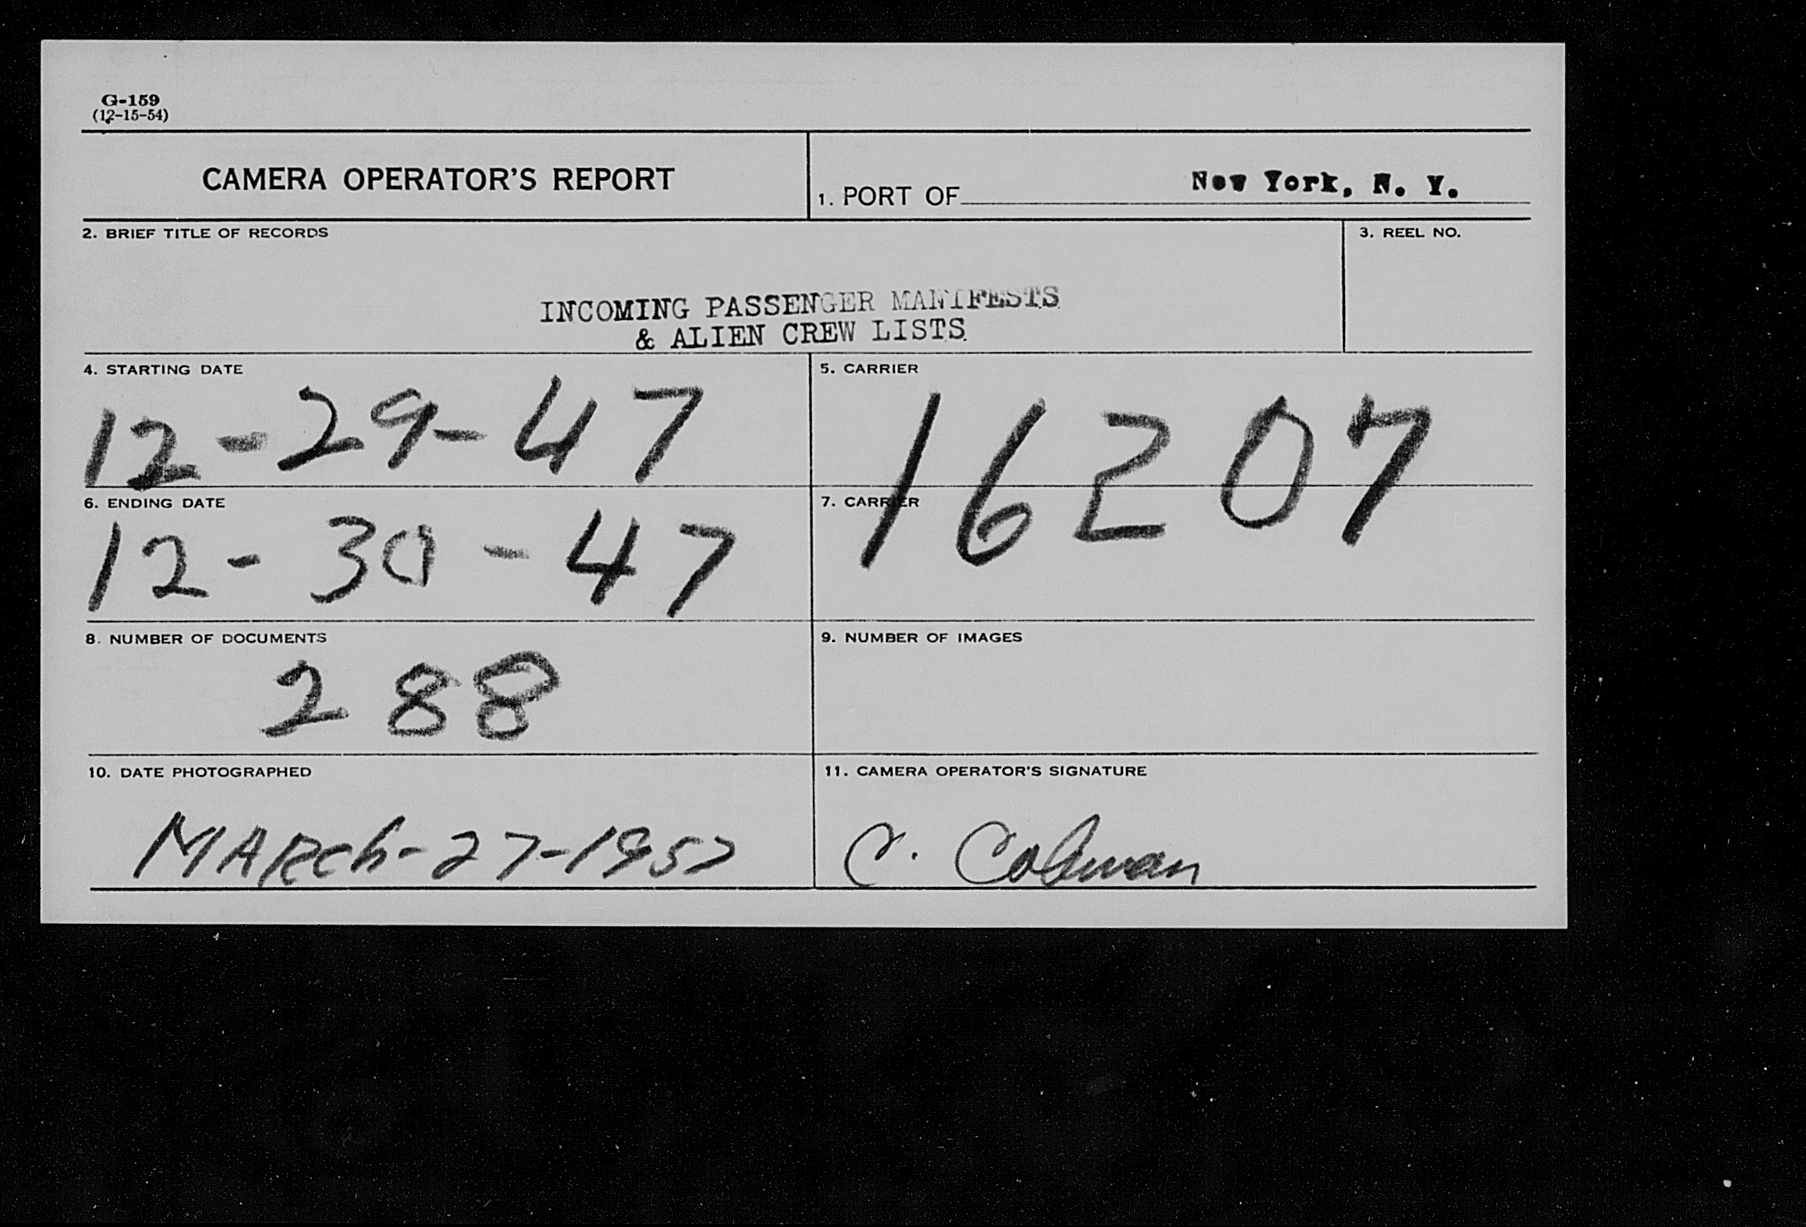 G-159
(12-15-54)
CAMERA OPERATOR'S REPORT
1. PORT OF New York, N. Y.
2. BRIEF TITLE OF RECORDS
3. REEL NO.
INCOMING PASSENGER MANIFESTS
& ALIEN CREW LISTS
4. STARTING DATE
12-29-47
5. CARRIER
16207
6. ENDING DATE
12-30-47
7. CARRIER
8. NUMBER OF DOCUMENTS
288
9. NUMBER OF IMAGES
10. DATE PHOTOGRAPHED
MARch-27-1957
11. CAMERA OPERATOR'S SIGNATURE
C. Colman